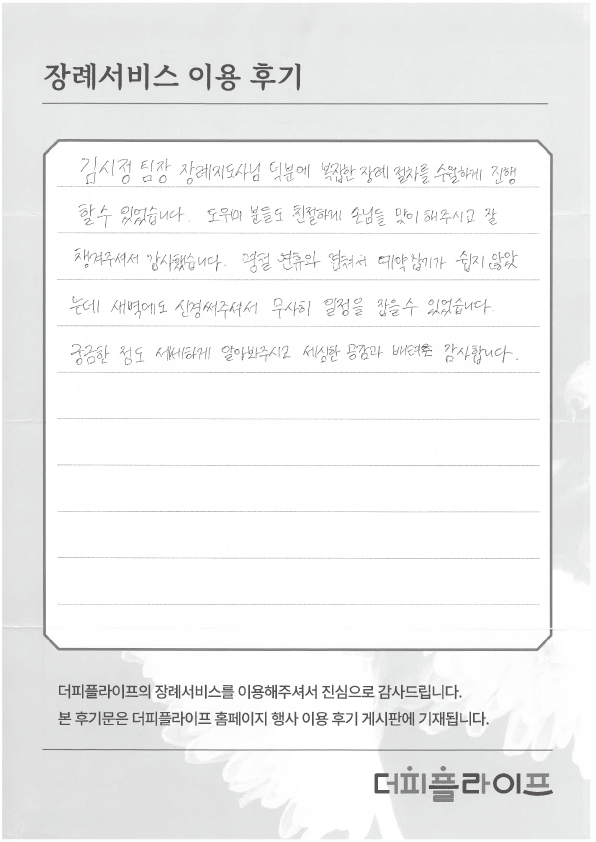 장례서비스 이용 후기
김시정 팀장 장례지도사님 덕분에 복잡한 장례 절차를 수월하게 진행
할 수 있었습니다. 도우미 분들도 친절하게 손님들 맞이해주시고 잘
챙겨주셔서 감사했습니다. 명절 연휴와 겹쳐서 예약잡기가 쉽지 않았
는데 새벽에도 신경써주셔서 무사히 일정을 잡을 수 있었습니다.
궁금한 점도 세세하게 알아봐주시고 세심한 공감과 배려 감사합니다.
더피플라이프의 장례서비스를 이용해주셔서 진심으로 감사드립니다.
본 후기문은 더피플라이프 홈페이지 행사 이용 후기 게시판에 기재됩니다.
더피플라이프